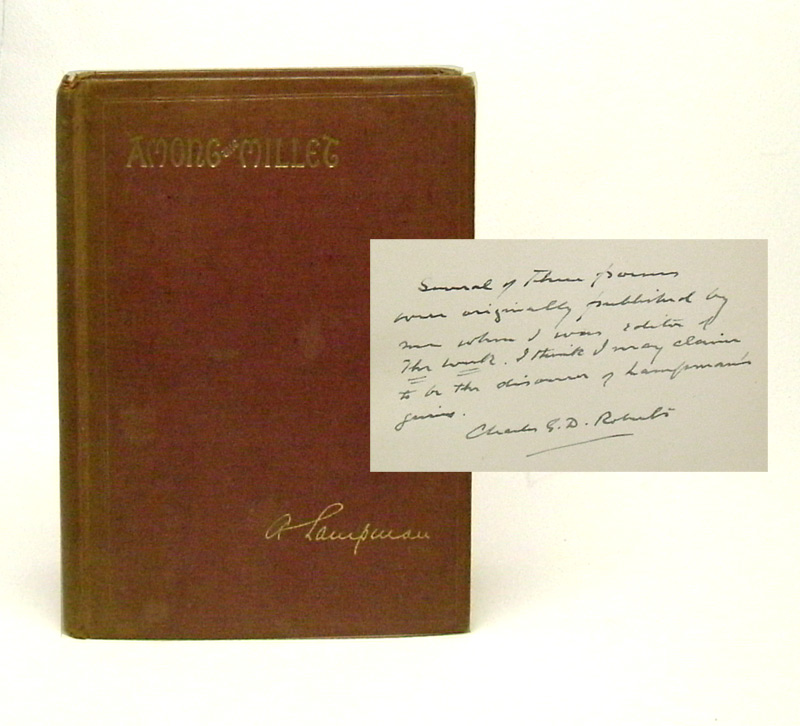 AMONG THE MILLET
A Lampman
Several of these poems
were originally published by
me when I was editor of
The Week. I think I may claim
to be the discoverer of Lampman's
genius.
Charles G. D. Roberts